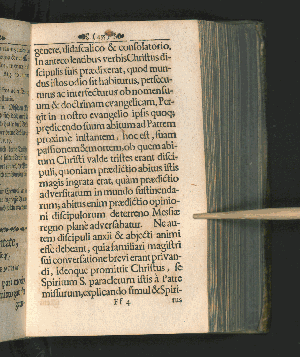 genere, didascalico & consolatorio.
In antecedentibus verbis Christus di-
scipulis suis prædixerat, quod mun-
dus illos odio sit habiturus, persecu-
turus ac interfecturus ob nomen su-
um & doctrinam evangelicam, Per-
git in nostro evangelio ipsis quoq;
prædicendo suum abitum ad Patrem
proxime instantem, hoc est, suam
passionem & mortem, ob quem abi-
tum Christi valde tristes erant disci-
puli, quoniam prædictio abitus istis
magis ingrata erat, quàm prædictio
adversitatum in mundo sustinenda-
rum; abitus enim prædictio opinio-
ni discipulorum de terreno Mesiæ
regno planè adversabatur. Ne au-
tem discipuli anxii & abjecti animi
esse debeant, quia familiari magistri
sui conversatione brevi erant privan-
di, ideoque promittit Christus, se
Spiritum S. paracletum istis à Patre
missurum, explicando simul & Spiri-
Ff 4
tus